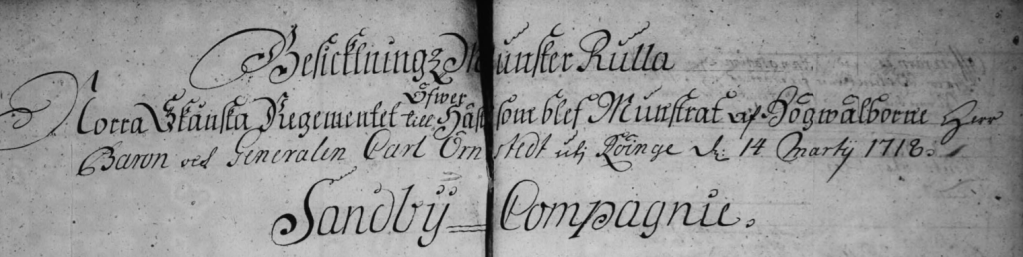 Besicktningz Munster Rulla
Öfwer
Norra Skånska Regementet till Häst som blef Munstrat af Högwälborne Herr
Baron och Generalen Carl Örnstedt uti Röinge d. 14 Martij 1718.
Sandbÿ Compagnie.